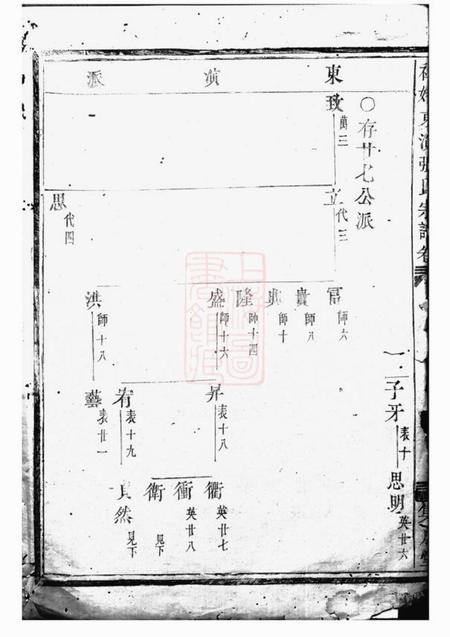 東演派
○存廿七公派
致 萬三
立 代三
思 代四
富 師六
貴 師八
興 師十
隆 師十四
盛 師十六
洪 師十八
子牙 表十
思明 英廿六
昇 表十八
宥 表十九
藝 表廿一
衢 英廿七
衝 英廿八
衛 見下
然 見下
東演張氏宗譜卷